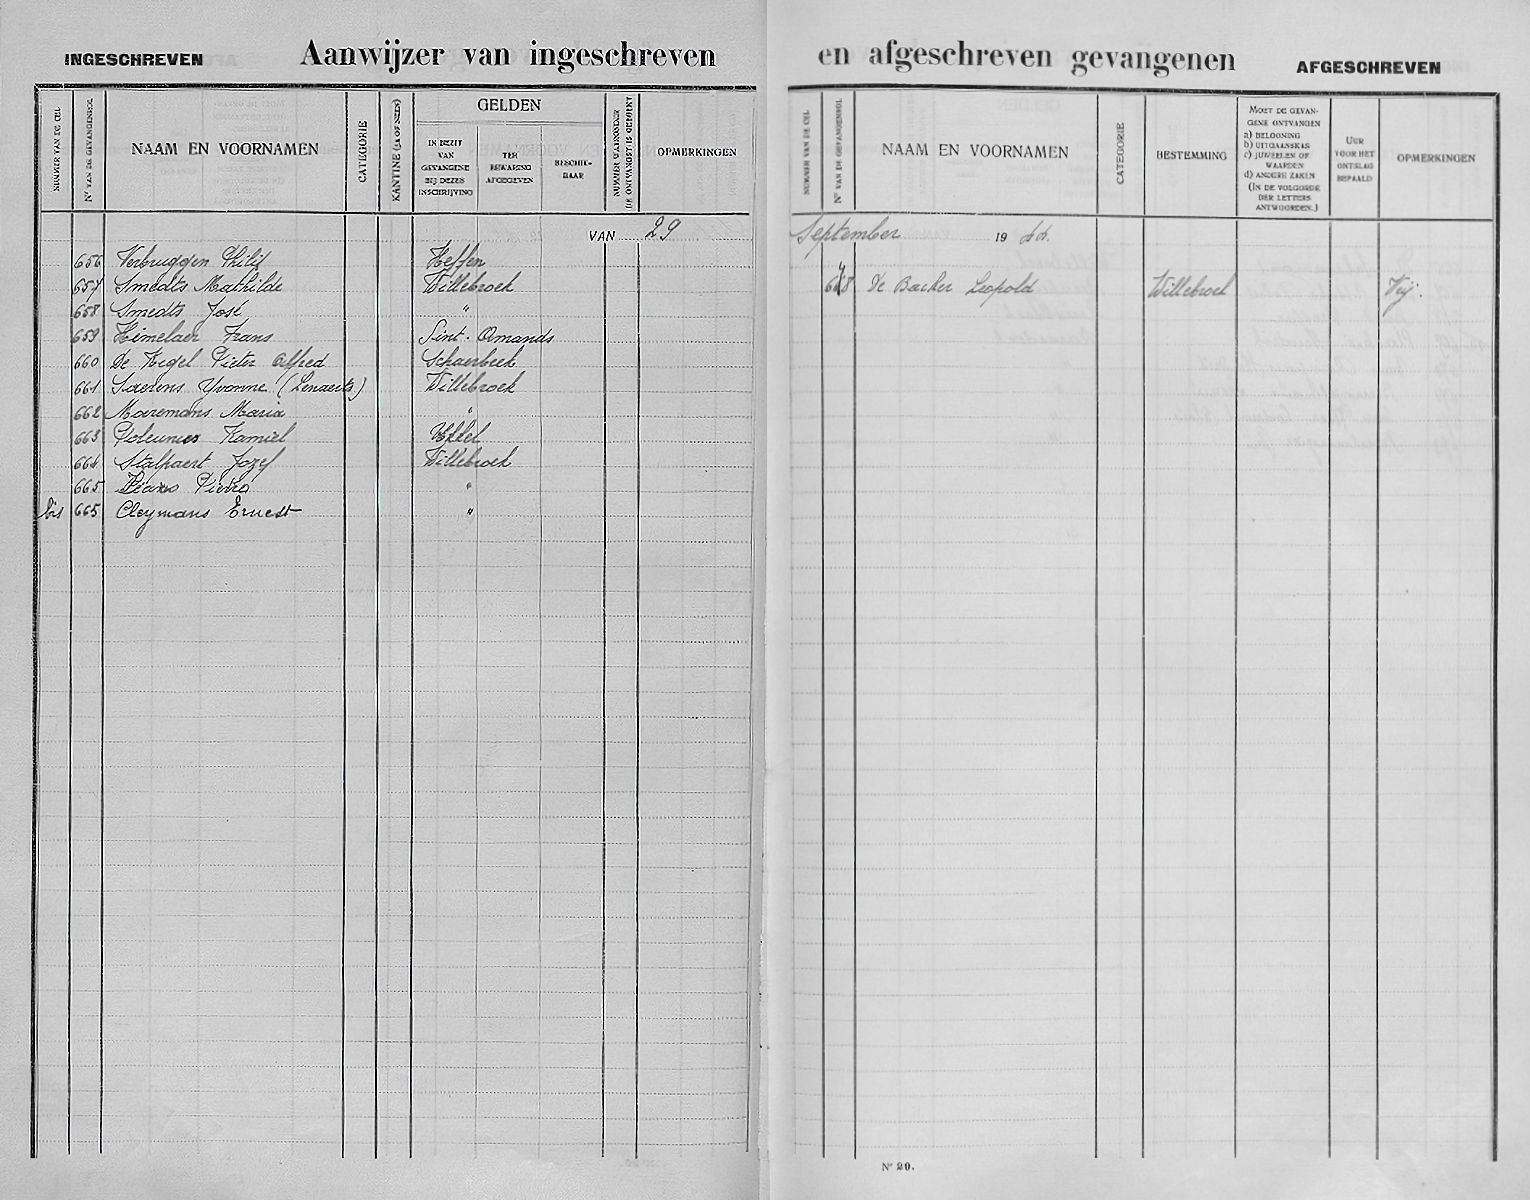 INGESCHREVEN
Aanwijzer van ingeschreven en afgeschreven gevangenen
AFGESCHREVEN
NUMMER VAN DE CEL
Nr VAN DE GEVANGENROL
NAAM EN VOORNAMEN
CATEGORIE
KANTINE (JA OF NEEN)
GELDEN
IN BEZIT VAN GEVANGENE BIJ DEZES INSCHRIJVING
TER BEWARING AFGEGEVEN
BESCHIK-BAAR
NUMMER WAARONDER DE ONTVANGST IS GEBOEKT
OPMERKINGEN
NUMMER VAN DE CEL
Nr VAN DE GEVANGENROL
NAAM EN VOORNAMEN
CATEGORIE
BESTEMMING
MOET DE GEVAN-
GENE ONTVANGEN
a) BELOONING
b) UITGAANSKAS
c) JUWEELEN OF
WAARDEN
d) ANDERE ZAKEN
(IN DE VOLGORDE
DER LETTERS
ANTWOORDEN.)
UUR
VOOR HET
ONTSLAG
BEPAALD
OPMERKINGEN
VAN 29 September 1944.
656 Verbruggen Philip Heffen
657 Smedts Mathilde Willebroek
658 Smedts José "
659 Himelaer Frans Sint-Amands
660 De Kegel Pieter Alfred Schaerbeek
661 Saerens Yvonne (Lenaerts) Willebroek
662 Maremans Maria "
663 Kamiel Ukkel
664 Stalpaert Jozef Willebroek
665 "
bis 665 Cleymans Ernest "
De Backer Leopold Willebroek Vrij.
Nr 20.